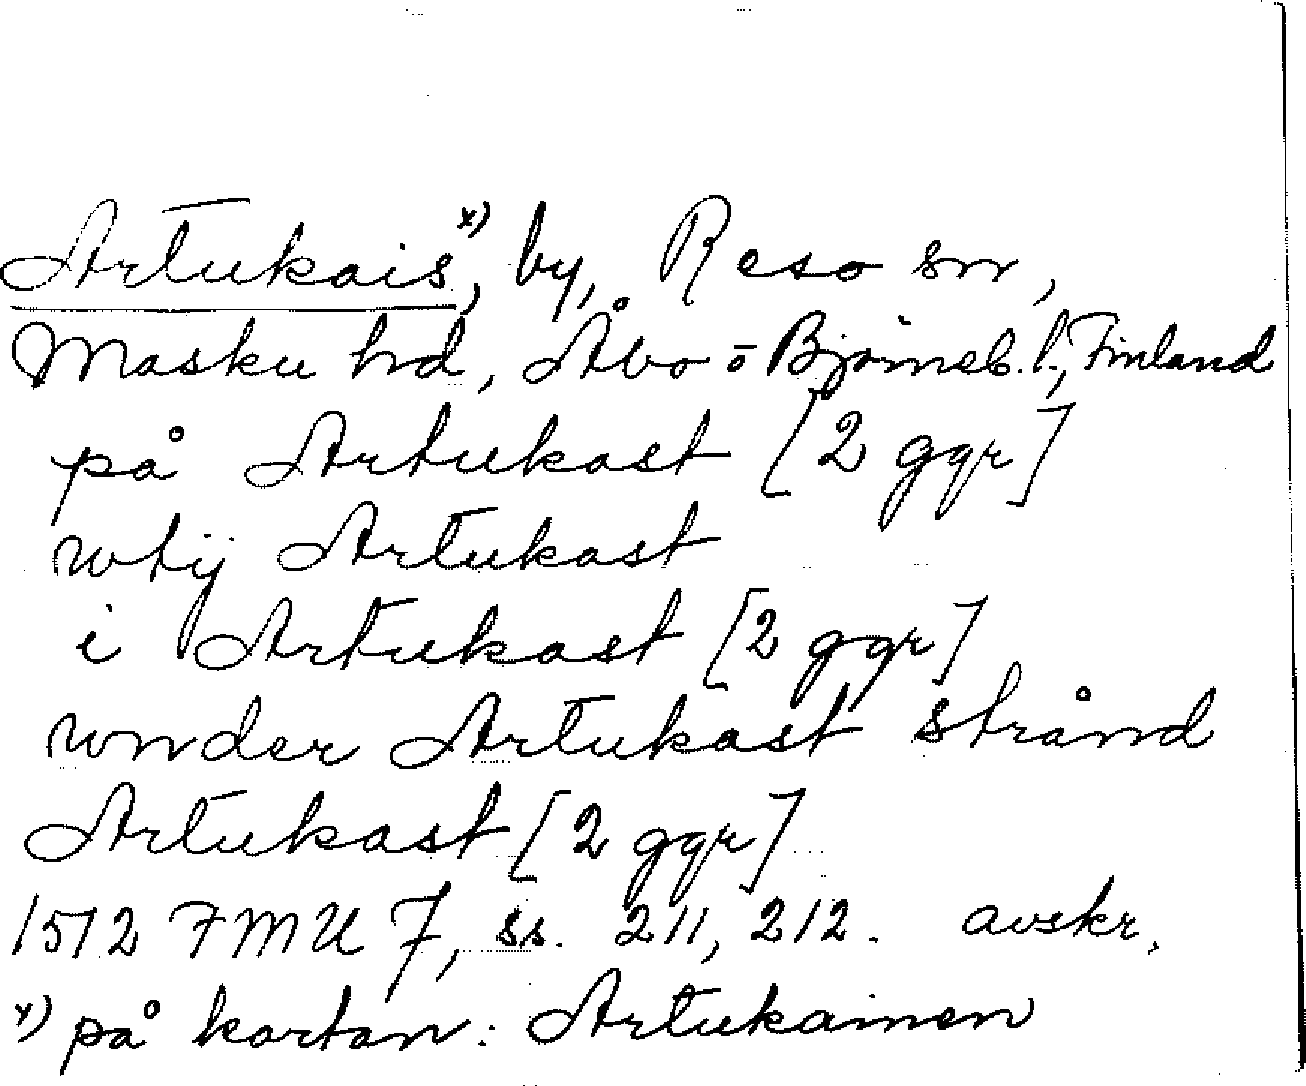 Artukais x), by, Reso sn,
Masku hd, Åbo o Björneb. l., Finland
på Artukast [2 ggr]
wtij Artukast
i Artukast [2 ggr]
wnder Artukast strånd
Artukast [2 ggr]
1512 FMU 7, ss. 211, 212. avskr.
x) på kartan: Artukainen